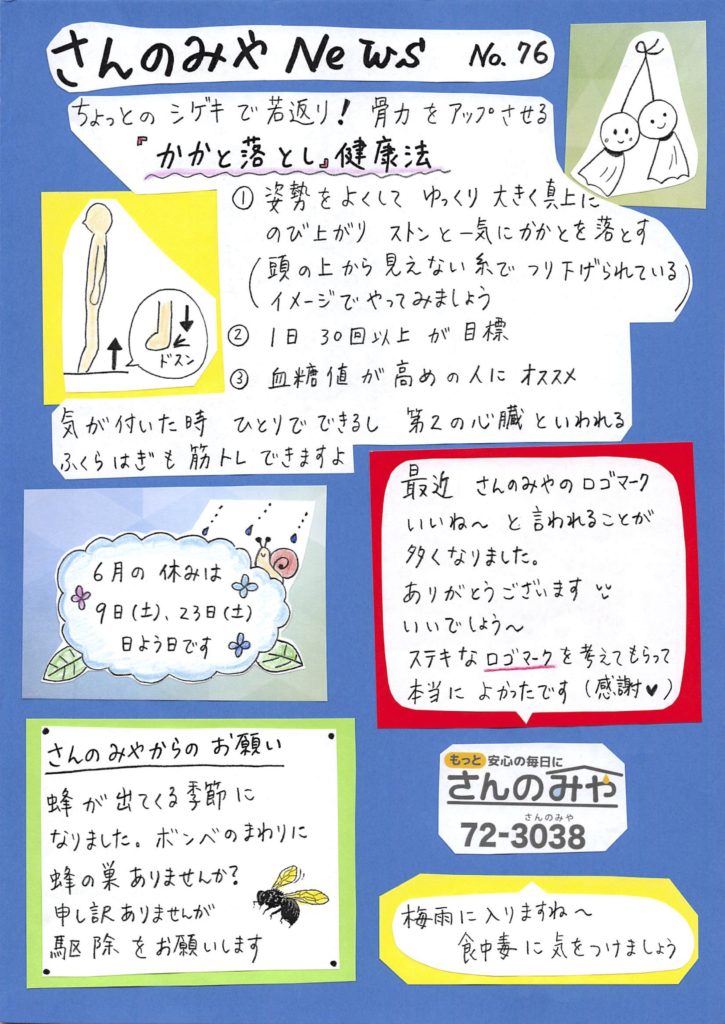 さんのみや News No.76
ちょっとの シゲキ で 若返り! 骨力 を アップさせる
『かかと落とし』健康法
① 姿勢をよくして ゆっくり 大きく真上に
のび上がり ストンと一気にかかとを落とす
(頭の上から見えない糸で つり下げられている
イメージでやってみましょう)
ドスン
② 1日 30回以上 が 目標
③ 血糖値 が 高めの人に オススメ
気が付いた時 ひとりでできるし 第2の心臓 といわれる
ふくらはぎも 筋トレ できますよ
6月の 休みは
9日(土)、23日(土)
日よう日です
最近 さんのみやのロゴマーク
いいね〜 と 言われることが
多くなりました。
ありがとうございます
いいでしょう〜
ステキな ロゴマークを 考えてもらって
本当に よかったです (感謝♥)
さんのみやからの お願い
蜂が出てくる季節に
なりました。ボンベのまわりに
蜂の巣ありませんか?
申し訳ありませんが
駆除をお願いします
もっと 安心の毎日に
さんのみや
さんのみや
72-3038
梅雨に入りますね〜
食中毒に気をつけましょう